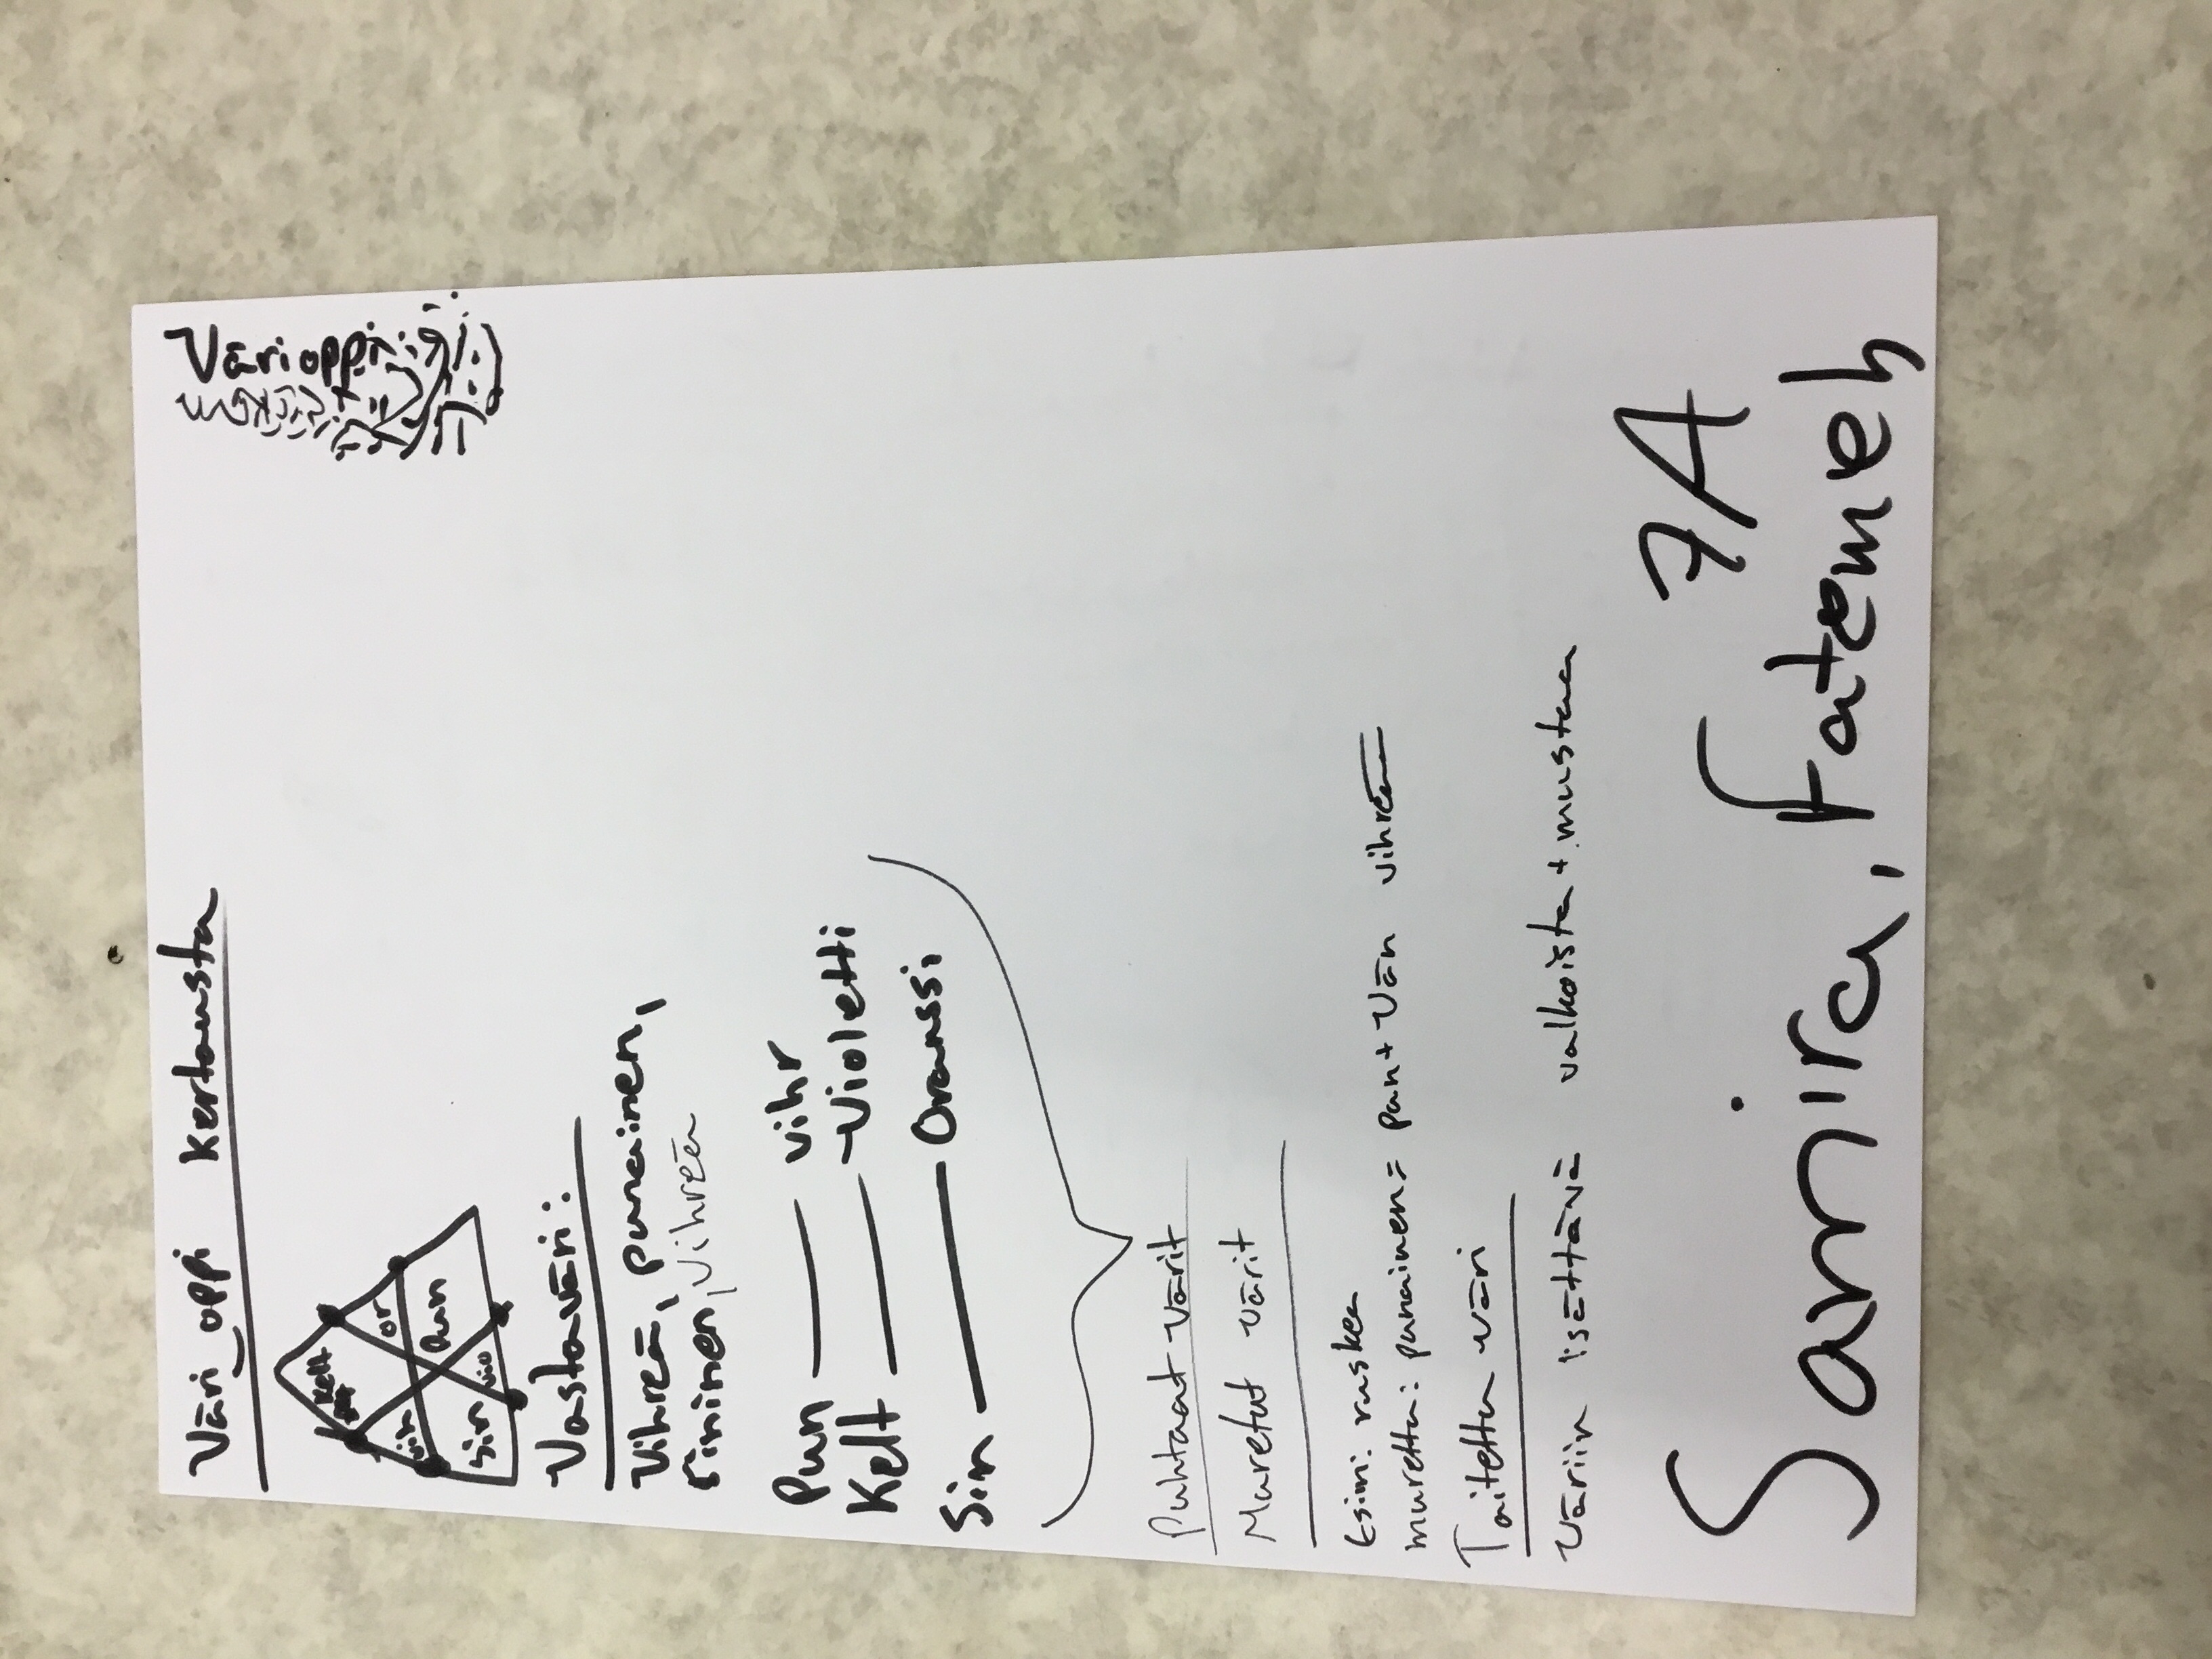 Väri oppi kertausta
Värioppi
kelt
or
vih
Pun
sin
vio
Vastaväri:
Vihreä, punainen,
sininen, vihreä
Pun — vihr
Kelt — Violetti
Sin — Oranssi
Puhtaat värit
Muretut värit
Esim: ruskea
murettu: punainen = pun + vän vihreää
Taitettu väri
Väriin lisättävä valkoista + mustaa
7A
Samira, Fatemeh